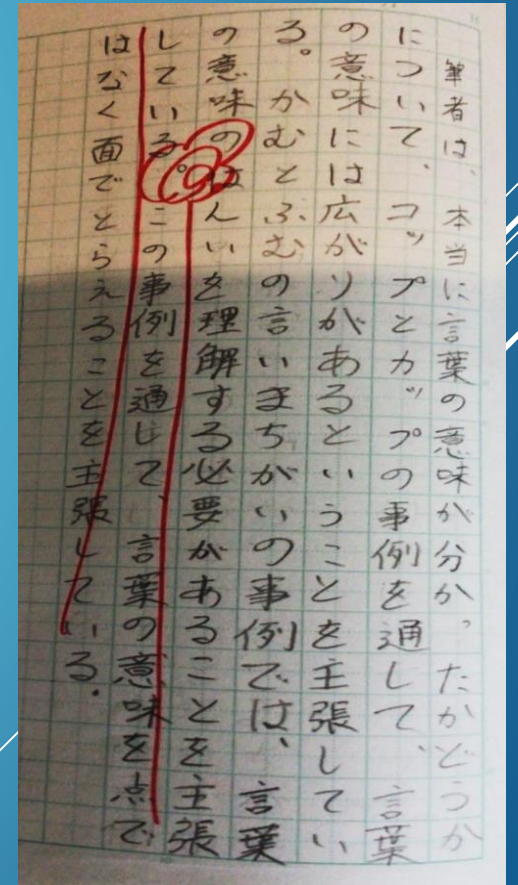 筆者は、本当に言葉の意味が分かったかどうか
について、コップとカップの事例を通して、言葉
の意味には広がりがあるということを主張してい
る。かむとふむの言いまちがいの事例では、言葉
の意味のはんいを理解する必要があることを主張
している。この事例を通じて、言葉の意味を点で
はなく面でとらえることを主張している。